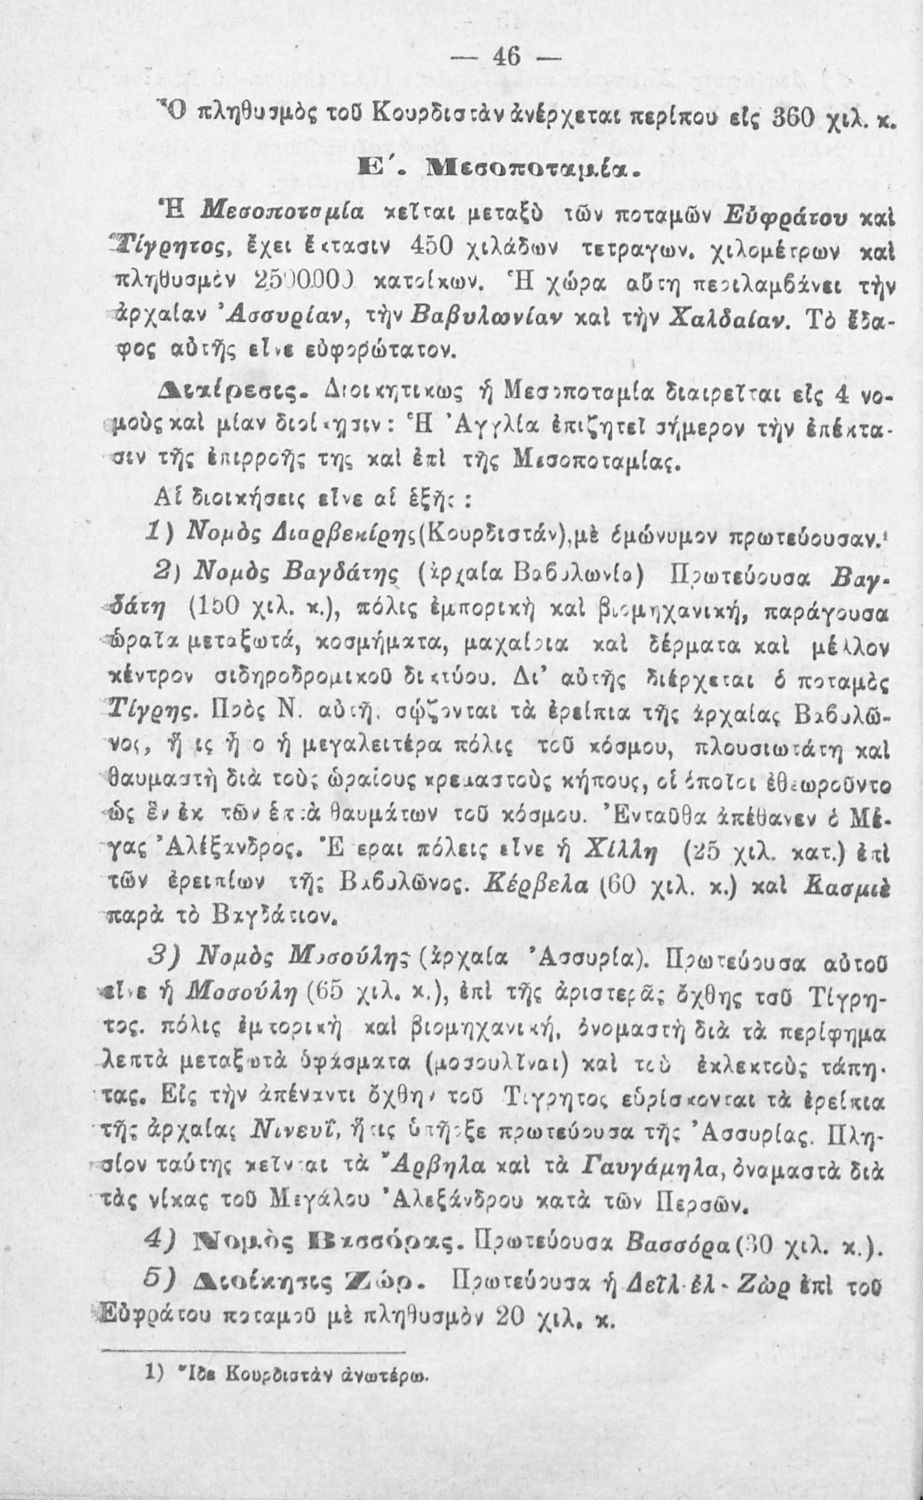 — 46 —
Ὁ πληθυσμὸς τοῦ Κουρδιστὰν ἀνέρχεται περίπου εἰς 360 χιλ. κ.
Ε΄. Μεσοποταμία.
Ἡ Μεσοποταμία κεῖται μεταξὺ τῶν ποταμῶν Εὐφράτου καὶ
Τίγρητος, ἔχει ἔκτασιν 450 χιλάδων τετραγων. χιλομέτρων καὶ
πληθυσμὸν 2500000 κατοίκων. Ἡ χώρα αὕτη περιλαμβάνει τὴν
ἀρχαίαν Ἀσσυρίαν, τὴν Βαβυλωνίαν καὶ τὴν Χαλδαίαν. Τὸ ἔδα-
φος αὐτῆς εἶνε εὐφορώτατον.
Διαίρεσις. Διοικητικως ἡ Μεσοποταμία διαιρεῖται εἰς 4 νο-
μοὺς καὶ μίαν διοίκησιν : Ἡ Ἀγγλία ἐπιζητεῖ σήμερον τὴν ἐπέκτα-
σιν τῆς ἐπιρροῆς της καὶ ἐπὶ τῆς Μεσοποταμίας.
Αἱ διοικήσεις εἶνε αἱ ἑξῆς :
1) Νομὸς Διαρβεκίρης (Κουρδιστάν), μὲ ὁμώνυμον πρωτεύουσαν.¹
2) Νομὸς Βαγδάτης (ἀρχαία Βαβυλωνία) Πρωτεύουσα Βαγ-
δάτη (150 χιλ. κ.), πόλις ἐμπορικὴ καὶ βιομηχανική, παράγουσα
ὡραῖα μεταξωτά, κοσμήματα, μαχαίρια καὶ δέρματα καὶ μέλλον
κέντρον σιδηροδρομικοῦ δικτύου. Δι’ αὐτῆς διέρχεται ὁ ποταμὸς
Τίγρης. Πρὸς Ν. αὐτῆς σῴζονται τὰ ἐρείπια τῆς ἀρχαίας Βαβυλῶ-
νος, ἥτις ἦτο ἡ μεγαλειτέρα πόλις τοῦ κόσμου, πλουσιωτάτη καὶ
θαυμαστὴ διὰ τοὺς ὡραίους κρεμαστοὺς κήπους, οἱ ὁποῖοι ἐθεωροῦντο
ὡς ἓν ἐκ τῶν ἑπτὰ θαυμάτων τοῦ κόσμου. Ἐνταῦθα ἀπέθανεν ὁ Μέ-
γας Ἀλέξανδρος. Ἕτεραι πόλεις εἶνε ἡ Χίλλη (25 χιλ. κατ.) ἐπὶ
τῶν ἐρειπίων τῆς Βαβυλῶνος. Κέρβελα (60 χιλ. κ.) καὶ Κασμιὲ
παρὰ τὸ Βαγδάτιον.
3) Νομὸς Μοσούλης (ἀρχαία Ἀσσυρία). Πρωτεύουσα αὐτοῦ
εἶνε ἡ Μοσούλη (65 χιλ. κ.), ἐπὶ τῆς ἀριστερᾶς ὄχθης τοῦ Τίγρη-
τος. πόλις ἐμπορικὴ καὶ βιομηχανική, ὀνομαστὴ διὰ τὰ περίφημα
λεπτὰ μεταξωτὰ ὑφάσματα (μοσουλῖναι) καὶ τοὺς ἐκλεκτοὺς τάπη-
τας. Εἰς τὴν ἀπέναντι ὄχθην τοῦ Τίγρητος εὑρίσκονται τὰ ἐρείπια
τῆς ἀρχαίας Νινευΐ, ἥτις ὑπῆρξε πρωτεύουσα τῆς Ἀσσυρίας. Πλη-
σίον ταύτης κεῖνται τὰ Ἄρβηλα καὶ τὰ Γαυγάμηλα, ὀναμαστὰ διὰ
τὰς νίκας τοῦ Μεγάλου Ἀλεξάνδρου κατὰ τῶν Περσῶν.
4) Νομὸς Βασσόρας. Πρωτεύουσα Βασσόρα (30 χιλ. κ.).
5) Διοίκησις Ζώρ. Πρωτεύουσα ἡ Δεῒλ-ἐλ-Ζὼρ ἐπὶ τοῦ
Εὐφράτου ποταμοῦ μὲ πληθυσμὸν 20 χιλ. κ.
1) Ἴδε Κουρδιστὰν ἀνωτέρω.